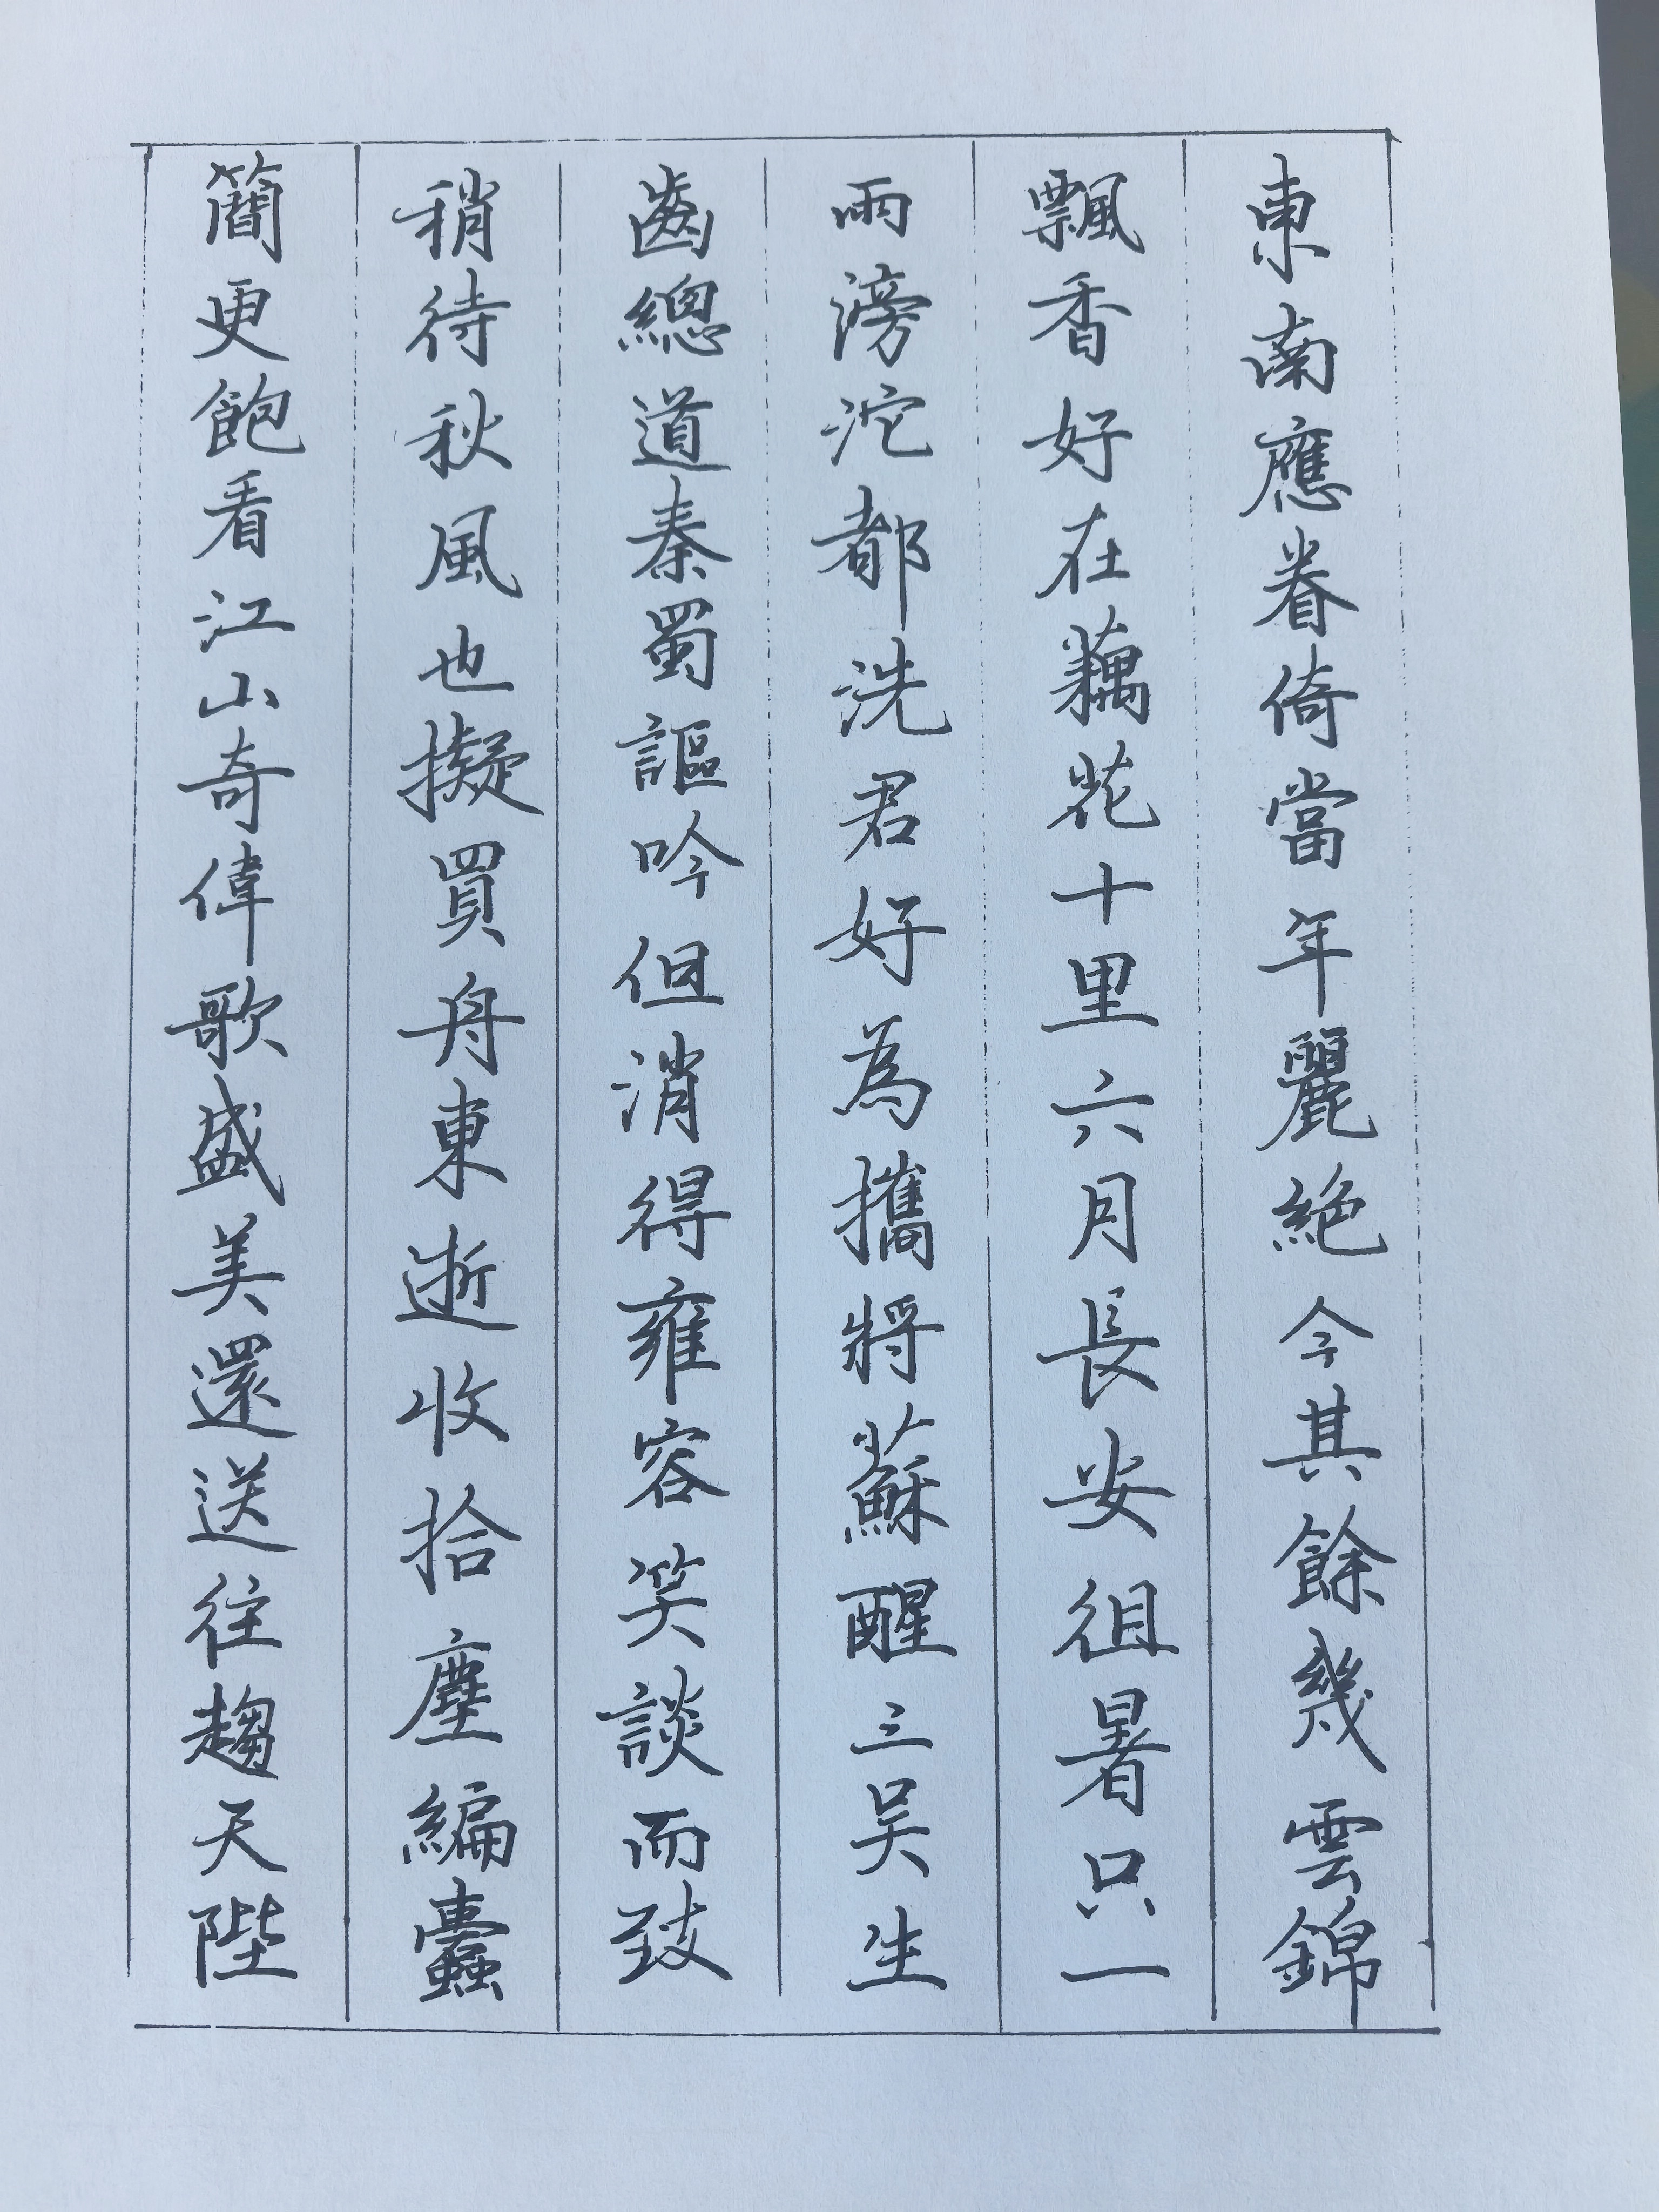 東南應眷倚當年麗絶今其餘幾雲錦
飄香好在藕花十里六月長安徂暑只一
雨滂沱都洗君好為攜將蘇醒三吴生
齒總道秦蜀謳吟但消得雍容笑談而致
稍待秋風也擬買舟東逝收拾塵編蠹
簡更飽看江山奇偉歌盛美還送往趨天陛